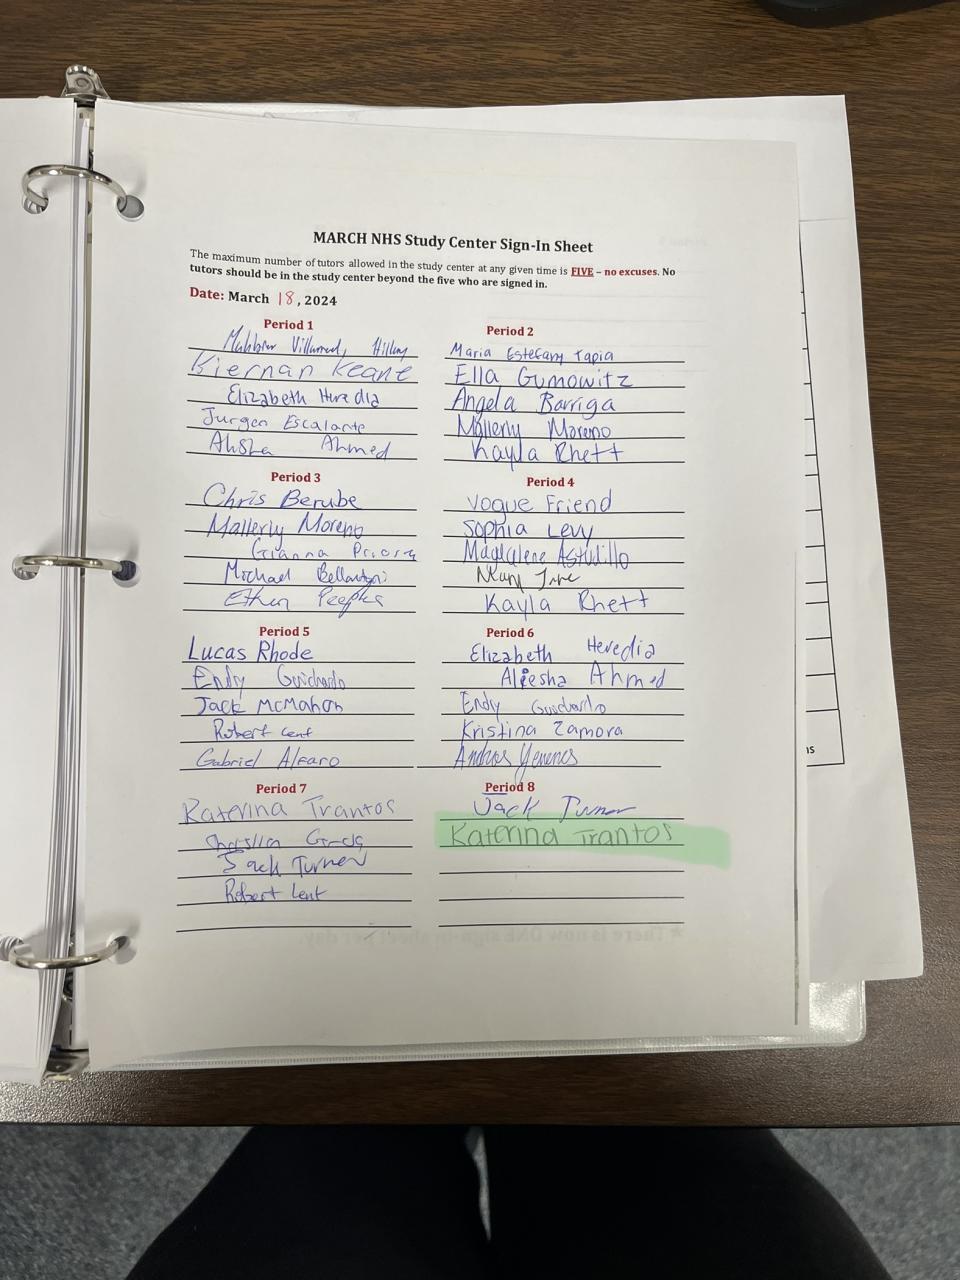 MARCH NHS Study Center Sign-In Sheet
The maximum number of tutors allowed in the study center at any given time is FIVE – no excuses. No
tutors should be in the study center beyond the five who are signed in.
Date: March 18, 2024
Period 1
Villarreal, Hillary
Kiernan Keane
Elizabeth Heredia
Jurgen Escalante
Ahmed
Period 2
Maria Estefany Tapia
Ella Gumowitz
Angela Barriga
Mallerly Moreno
Kayla Rhett
Period 3
Chris Berube
Mallerly Moreno
Gianna Priora
Michael Bellantoni
Ethan Peeples
Period 4
Vogue Friend
Sophia Levy
Magdalene Astudillo
Kayla Rhett
Period 5
Lucas Rhode
Endy Guichardo
Jack McMahon
Robert Lent
Gabriel Alfaro
Period 6
Elizabeth Heredia
Aleesha Ahmed
Endy Guichardo
Kristina Zamora
Andres
Period 7
Katerina Trantos
Jack Turner
Robert Lent
Period 8
Jack Turner
Katerina Trantos